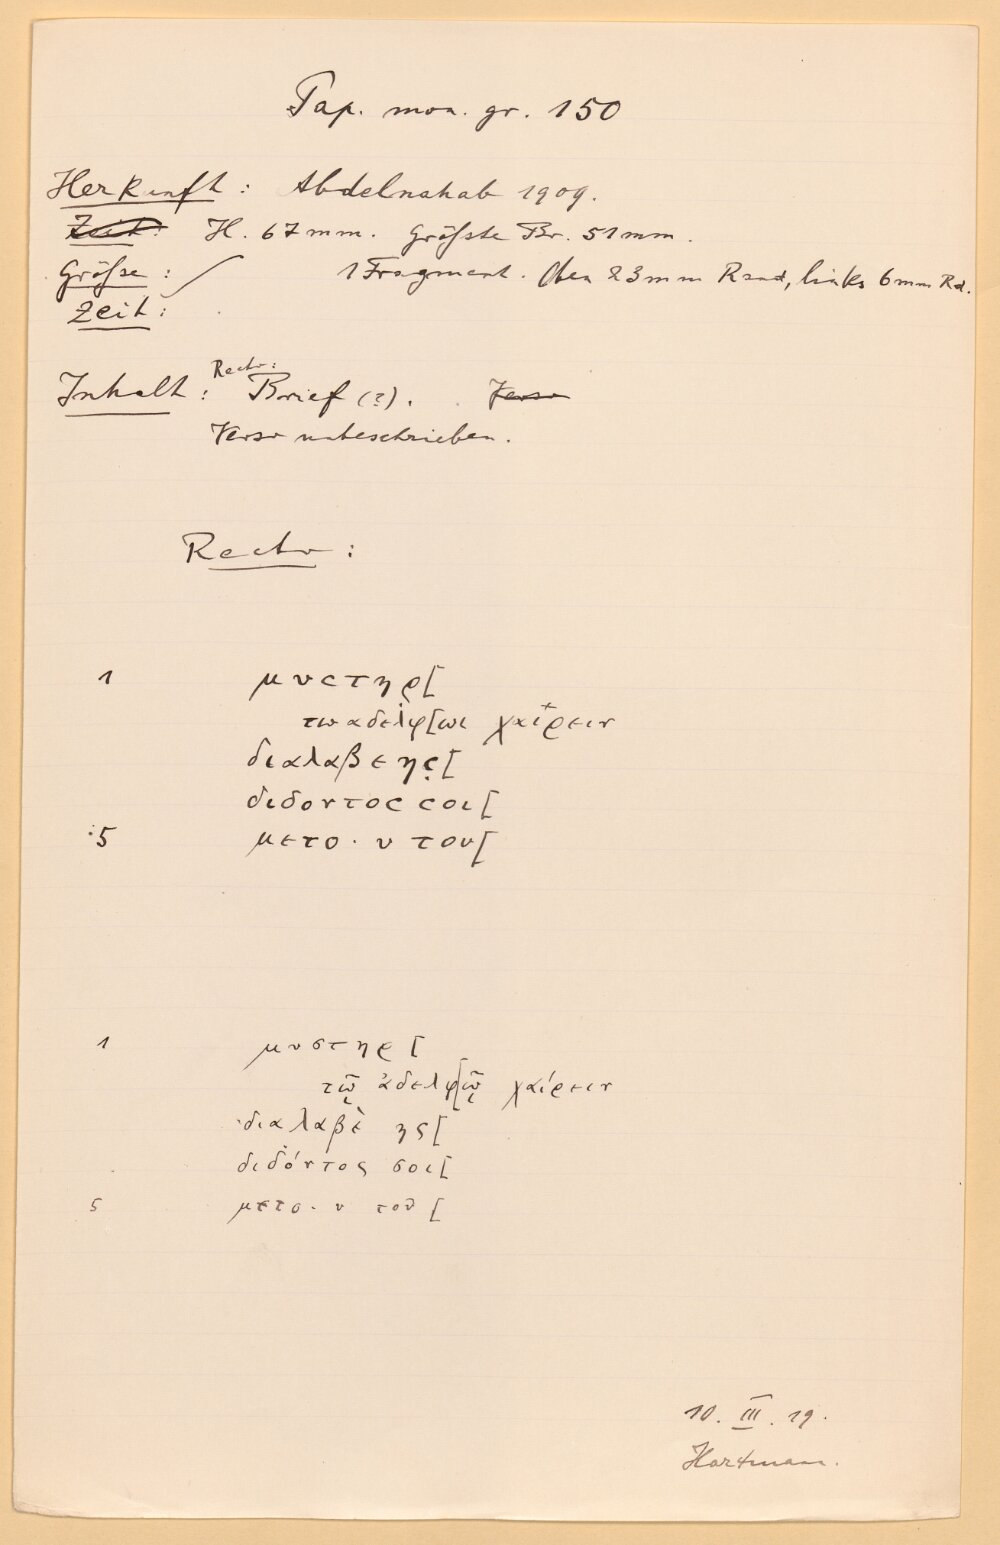 Pap. mon. gr. 150
Herkunft: Abdelnahab 1909.
Zeit: H. 67 mm. Größte Br. 51 mm.
Größe: 1 Fragment. Oben 23 mm Rand, links 6 mm Rd.
Zeit:
Recto:
Inhalt: Brief (?). Verso
Verso unbeschrieben.
Recto:
1 μυϲτηρ̣[
τωαδελφ[ωι χαίρειν
διαλαβεης̣[
διδοντοϲ ϲοι[
5 μετο . υ του[
1 μυστηρ[
τῷ ἀδελφ[ῷ χαίρειν
διαλαβὲ ης[
διδόντος σοι[
5 μετο . υ τοῦ [
10. III. 19.
Hartmann.